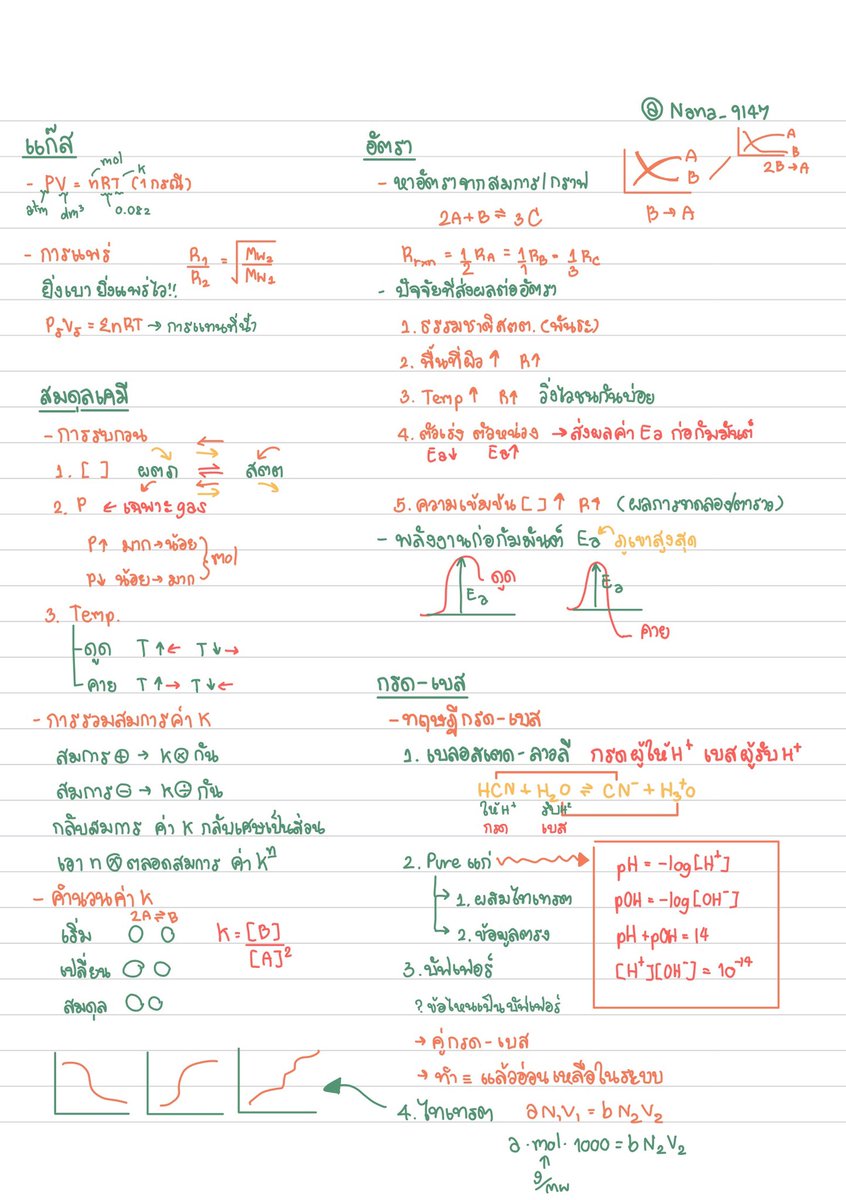 @ Nana_9147
แก๊ส
mol
K
- PV = nRT (1 กรณี)
atm dm³ 0.082
- การแพร่ R₁/R₂ = √(Mw₂/Mw₁)
ยิ่งเบา ยิ่งแพร่ไว!!
= ΣnRT → การแทนที่น้ำ
สมดุลเคมี
- การรบกวน
1. [ ] ผตภ ⇌ สตต
2. P ← เฉพาะ gas
P↑ มาก → น้อย
P↓ น้อย → มาก
mol
3. Temp.
ดูด T↑← T↓→
คาย T↑→ T↓←
- การรวมสมการค่า K
สมการ ⊕ → K ⊗ กัน
สมการ ⊖ → K ⨸ กัน
กลับสมการ ค่า K กลับเศษเป็นส่วน
เอา n ⊗ ตลอดสมการ ค่า Kⁿ
- คำนวนค่า K
2A ⇌ B
เริ่ม
เปลี่ยน
สมดุล
K = [B]/[A]²
อัตรา
- หาอัตราจากสมการ/กราฟ
2A + B ⇌ 3C
Rrxn = 1/2 RA = 1/1 RB = 1/3 RC
A
B
B → A
A
B
2B → A
- ปัจจัยที่ส่งผลต่ออัตรา
1. ธรรมชาติสตต. (พันธะ)
2. พื้นที่ผิว ↑ R↑
3. Temp ↑ R↑ วิ่งไวชนกันบ่อย
4. ตัวเร่ง ตัวหน่วง → ส่งผลค่า Ea ก่อกัมมันต์
Ea↓ Ea↑
5. ความเข้มข้น [ ] ↑ R↑ (ผลการทดลอง/ตาราง)
- พลังงานก่อกัมมันต์ Ea ภูเขาสูงสุด
Ea ดูด
Ea คาย
กรด-เบส
- ทฤษฎีกรด-เบส
1. เบลอสเตด-ลาวลี กรดผู้ให้ H⁺ เบสผู้รับ H⁺
HCN + H₂O ⇌ CN⁻ + H₃⁺O
ให้ H⁺ รับ
กรด เบส
2. Pure แก่
1. ผสมไทเทรต
2. ข้อมูลตรง
pH = -log[H⁺]
pOH = -log[OH⁻]
pH + pOH = 14
[H⁺][OH⁻] = 10⁻¹⁴
3. บัฟเฟอร์
? ข้อไหนเป็นบัฟเฟอร์
→ คู่กรด-เบส
→ ทำ ≡ แล้วอ่อนเหลือในระบบ
4. ไทเทรต aN₁V₁ = bN₂V₂
a · mol · 1000 = bN₂V₂
g/mw